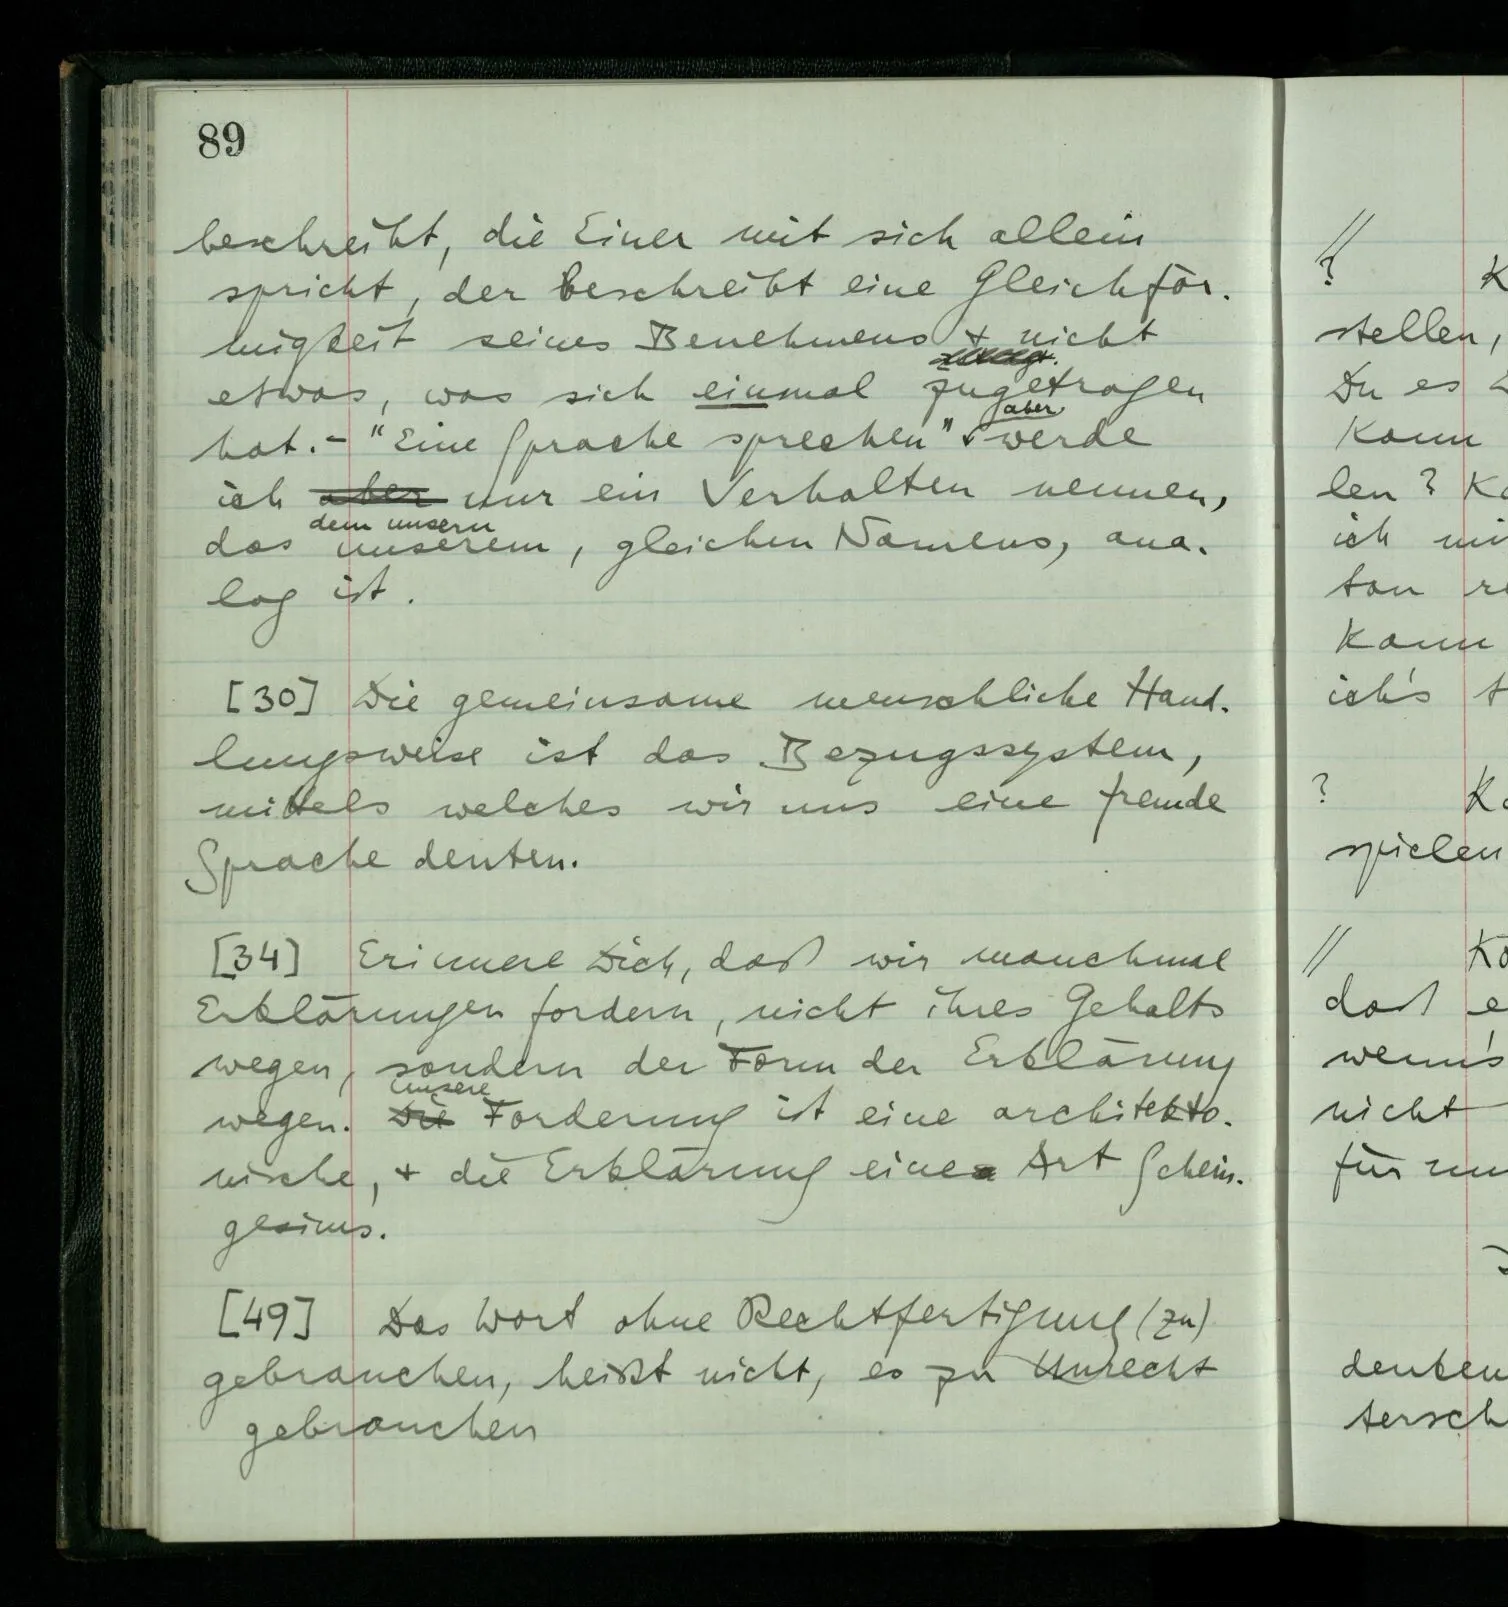 89
beschreibt, die Einer mit sich allein
spricht, der beschreibt eine Gleichför-
migkeit seines Benehmens & nicht
etwas, was sich einmal zugetragen
hat. – "Eine Sprache sprechen" aber werde
ich aber nur ein Verhalten nennen,
dem unsern
das unserem, gleichen Namens, ana-
log ist.
[30] Die gemeinsame menschliche Hand-
lungsweise ist das Bezugssystem,
mittels welches wir uns eine fremde
Sprache deuten.
[34] Erinnere Dich, daß wir manchmal
Erklärungen fordern, nicht ihres Gehalts
wegen, sondern der Form der Erklärung
unsere
wegen. Die Forderung ist eine architekto-
nische, & die Erklärung eine Art Schein-
gesims.
[49] Das Wort ohne Rechtfertigung (zu)
gebrauchen, heißt nicht, es zu Unrecht
gebrauchen
//
? K
stellen,
Du es
Kann
len? Ka
ich mi
ton re
Kann
ich's
? Ka
spielen
// Kö
daß e
wenn's
nicht
für un
denken
tersch